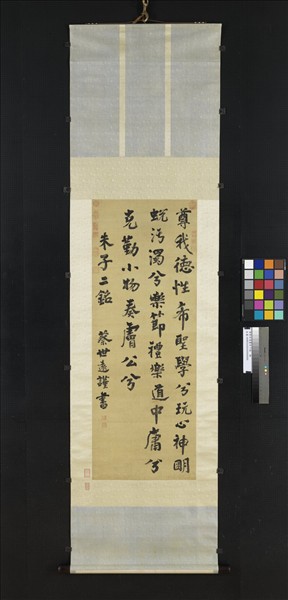 尊我德性希聖學兮玩心神明
蛻污濁兮樂節禮樂道中庸兮
克勤小物奏膚公兮
朱子二銘
蔡世遠謹書